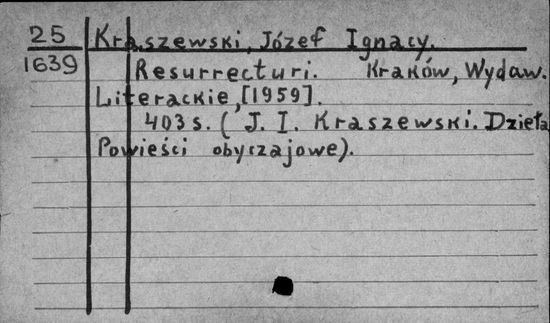 25 Kraszewski, Józef Ignacy.
1639 Resurrecturi. Kraków, Wydaw.
Literackie, [1959].
403 s. (J. I. Kraszewski. Dzieła
Powieści obyczajowe).